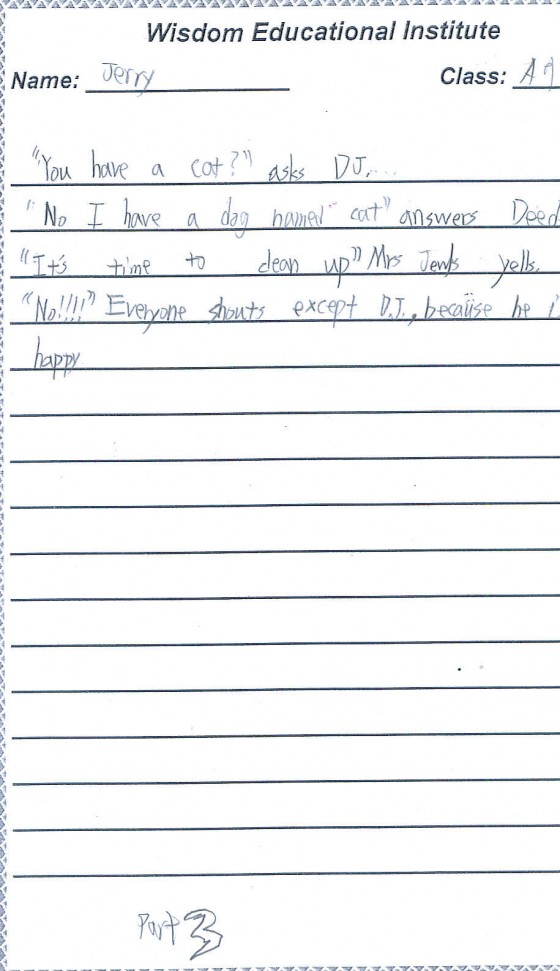 Wisdom Educational Institute
Name: Jerry Class: A
"You have a cat?" asks DJ.
"No I have a dog named "cat" answers Deed
"It's time to clean up" Mrs Jewls yells.
"No!!!!" Everyone shouts except D.J., because he i
happy
Part 3